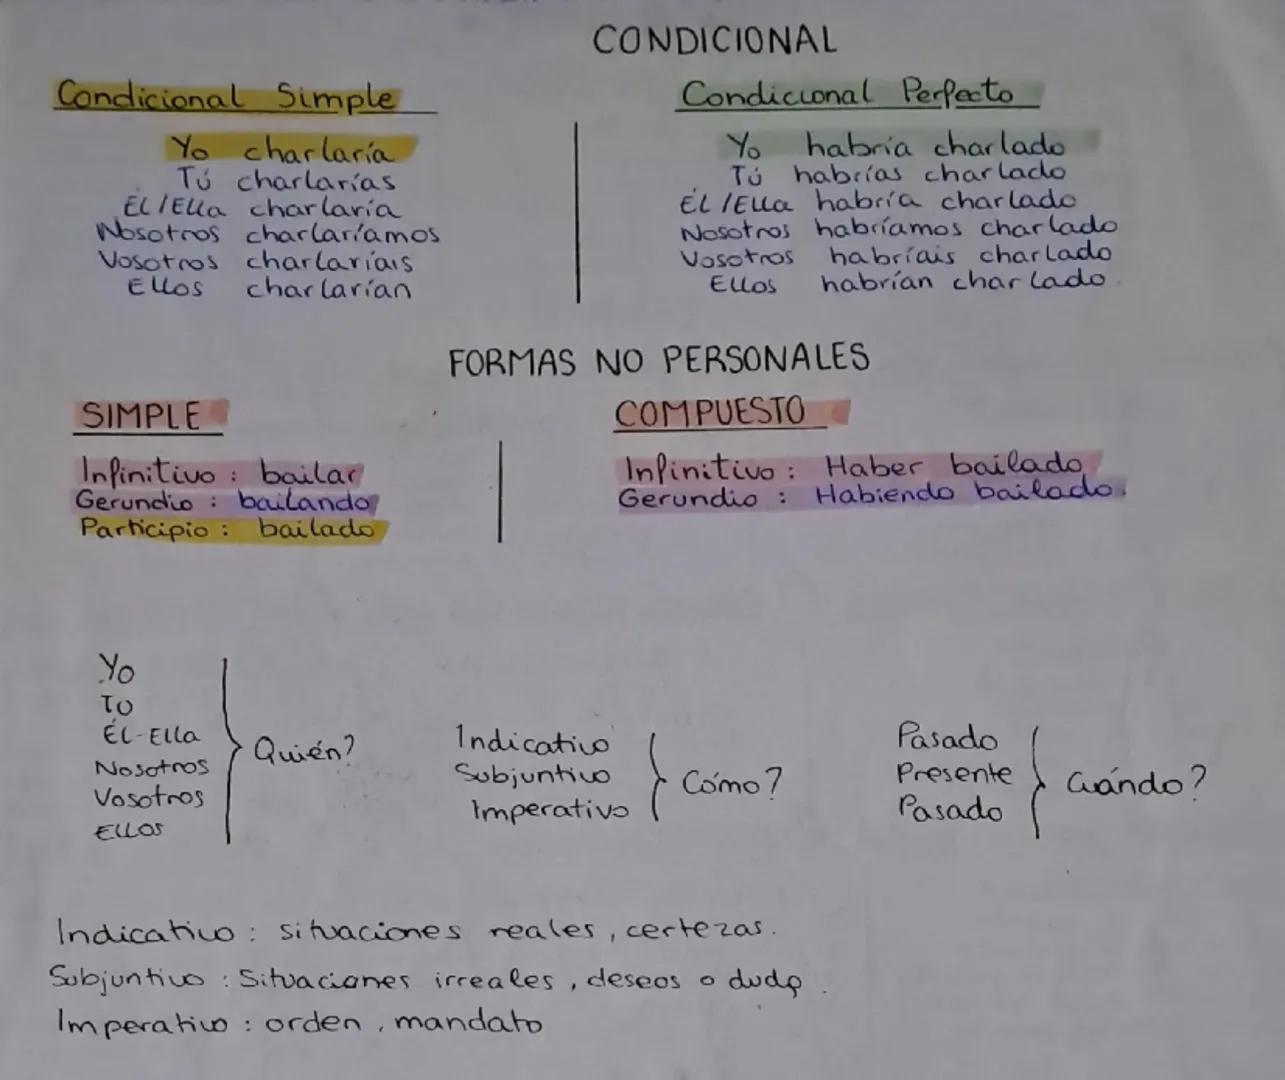 CONDICIONAL
Condicional Simple
Yo charlaría
Tú charlarías
Él/Ella charlaría
Nosotros charlaríamos
Vosotros charlaríais
Ellos charlarían
Condicional Perfecto
Yo habría charlado
Tú habrías charlado
Él/Ella habría charlado
Nosotros habríamos charlado
Vosotros habríais charlado
Ellos habrían charlado
FORMAS NO PERSONALES
SIMPLE
Infinitivo : bailar
Gerundio : bailando
Participio : bailado
COMPUESTO
Infinitivo : Haber bailado
Gerundio : Habiendo bailado.
Yo
Tu
Él-Ella
Nosotros
Vosotros
Ellos
Quién?
Indicativo
Subjuntivo
Imperativo
Cómo?
Pasado
Presente
Pasado
Cuándo?
Indicativo : situaciones reales, certezas.
Subjuntivo : Situaciones irreales, deseos o duda.
Imperativo : orden, mandato